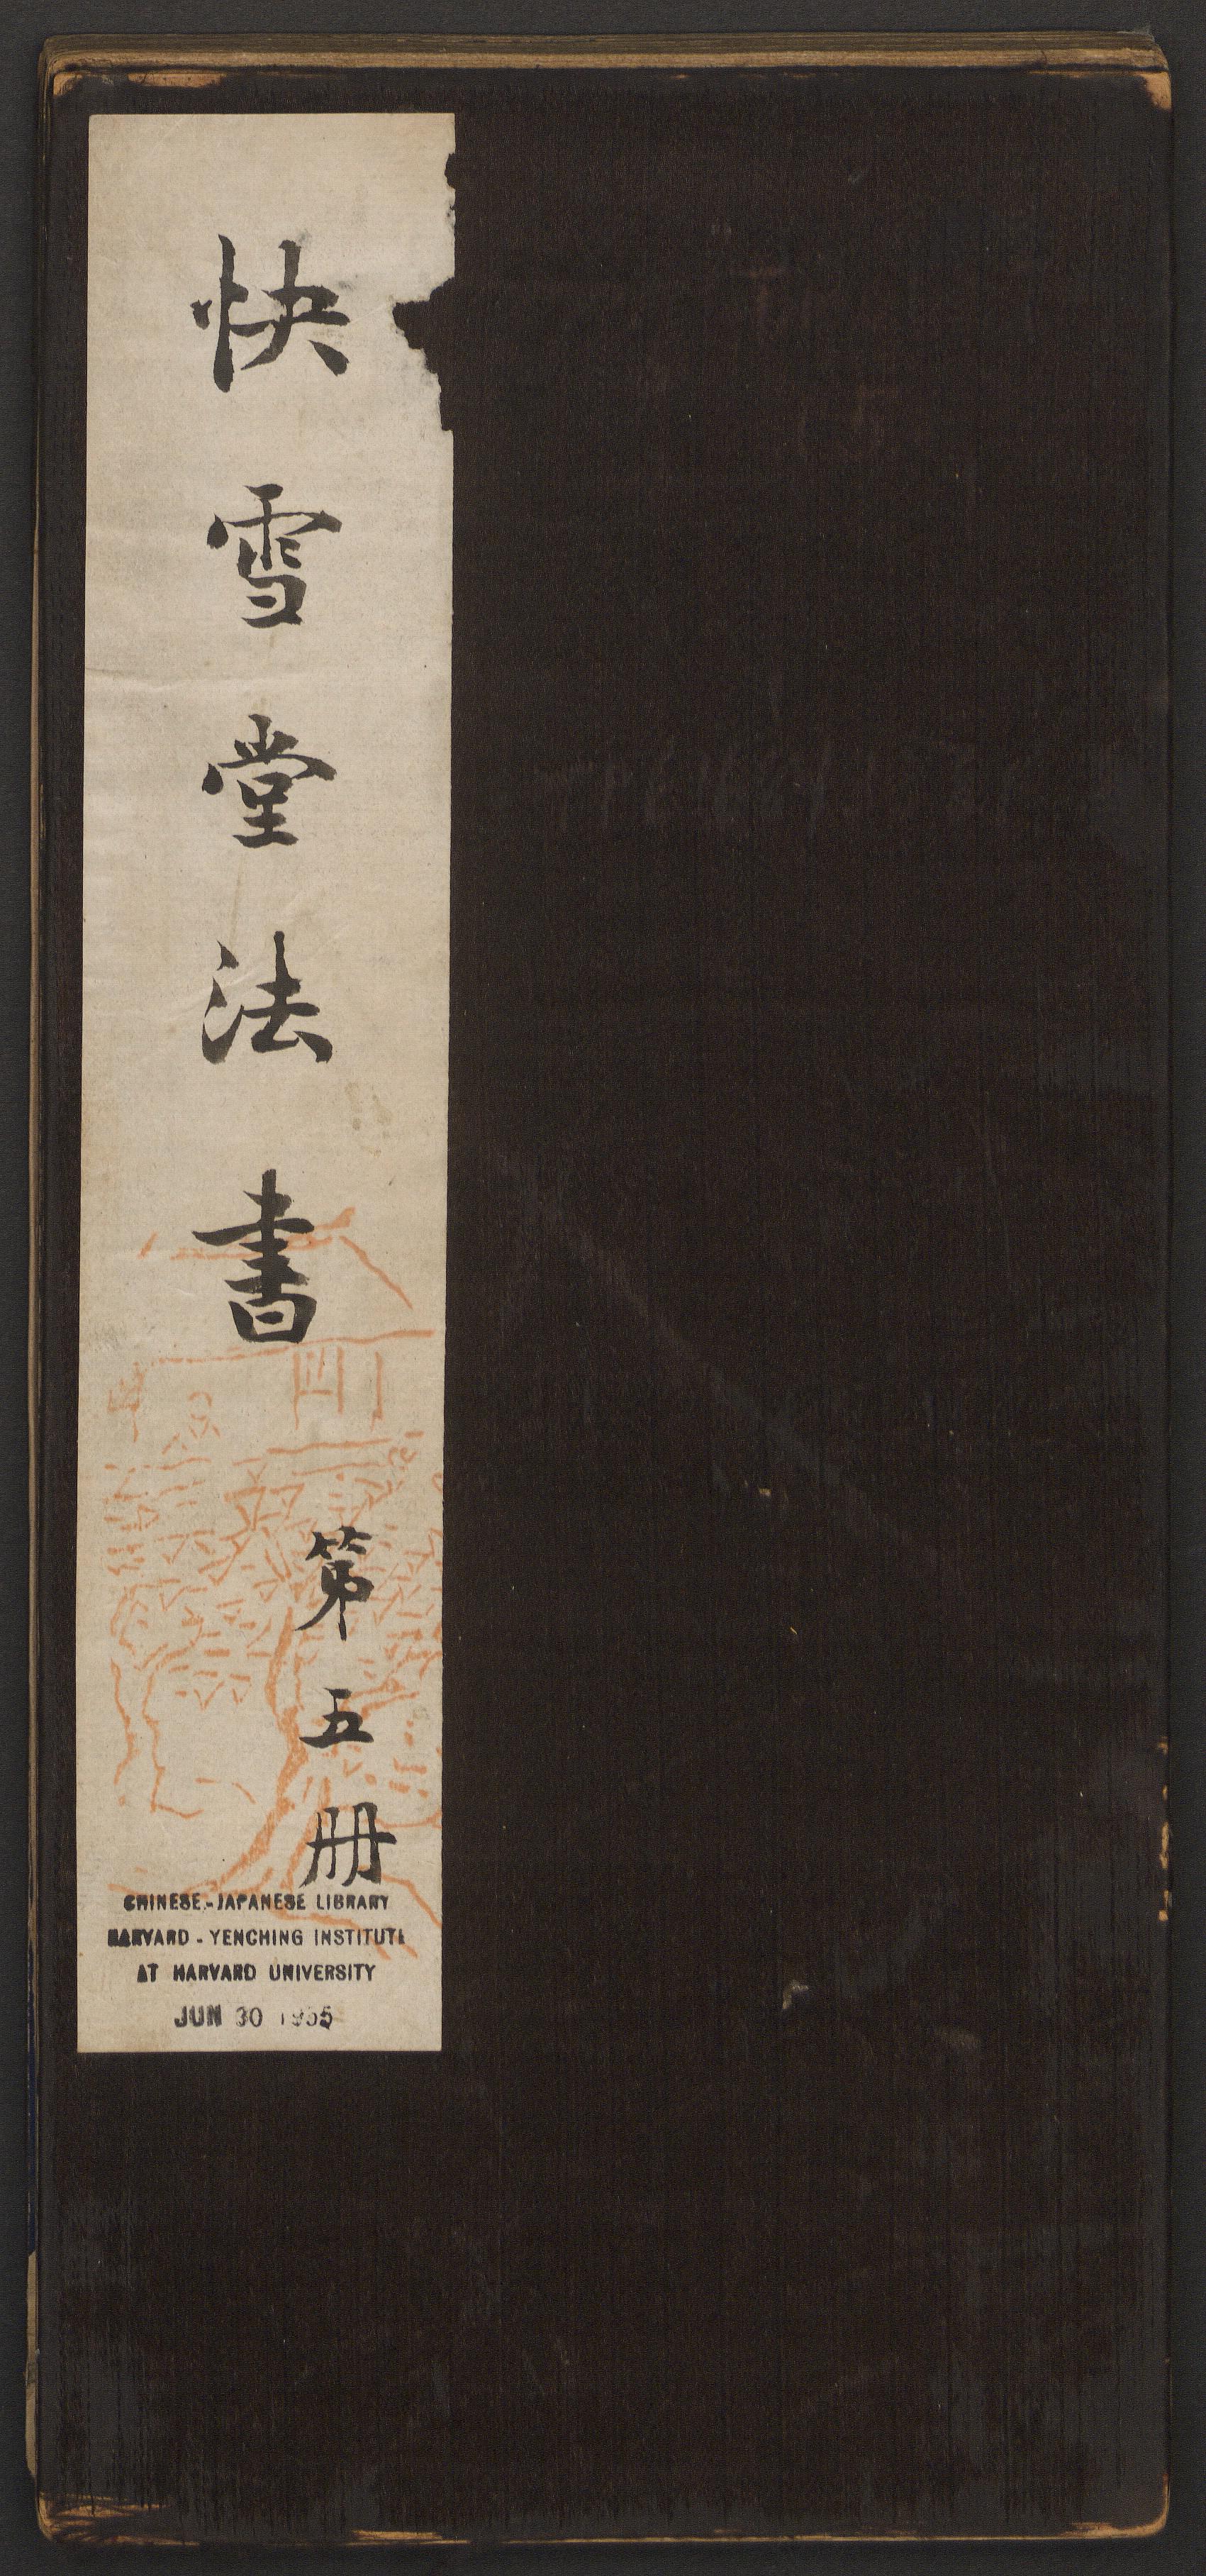 快雪堂法書
第五冊
CHINESE-JAPANESE LIBRARY
HARVARD-YENCHING INSTITUTE
AT HARVARD UNIVERSITY
JUN 30 1955